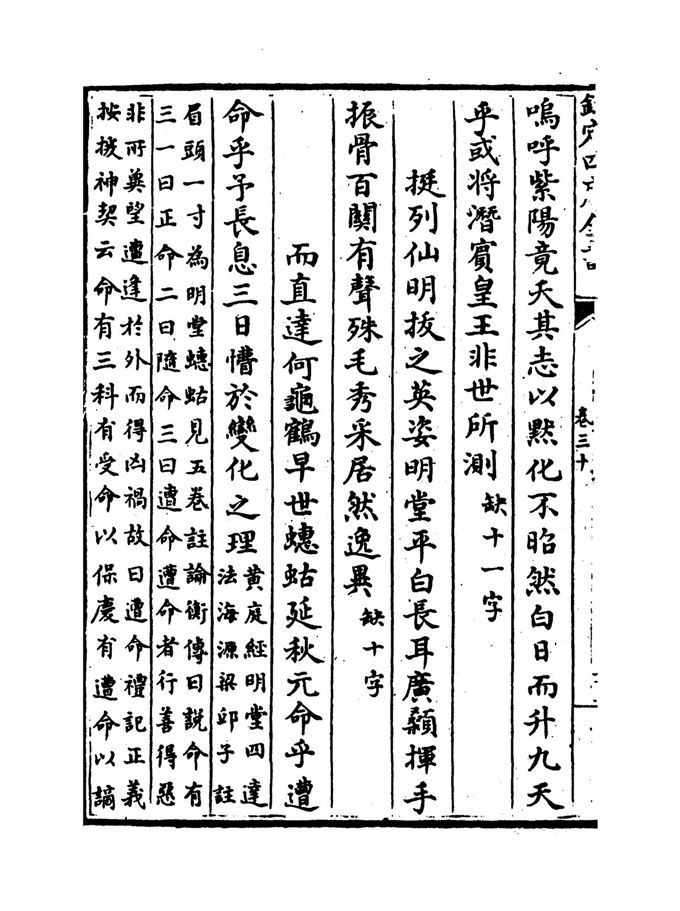 欽定四庫全書
卷三十
嗚呼紫陽竟夭其志以黙化不昭然白日而升九天
乎或將潛賓皇王非世所測缺十一字
挺列仙明拔之英姿明堂平白長耳廣顙揮手
振骨百闗有聲殊毛秀采居然逸異缺十字
而直達何龜鶴早世蟪蛄延秋元命乎遭
命乎予長息三日懵於變化之理
黄庭經明堂四達
法海源梁邱子註
眉頭一寸為明堂蟪蛄見五卷註論衡傳曰說命有
三一曰正命二曰隨命三曰遭命遭命者行善得惡
非所冀望遭逢於外而得凶禍故曰遭命禮記正義
按援神契云命有三科有受命以保慶有遭命以謫